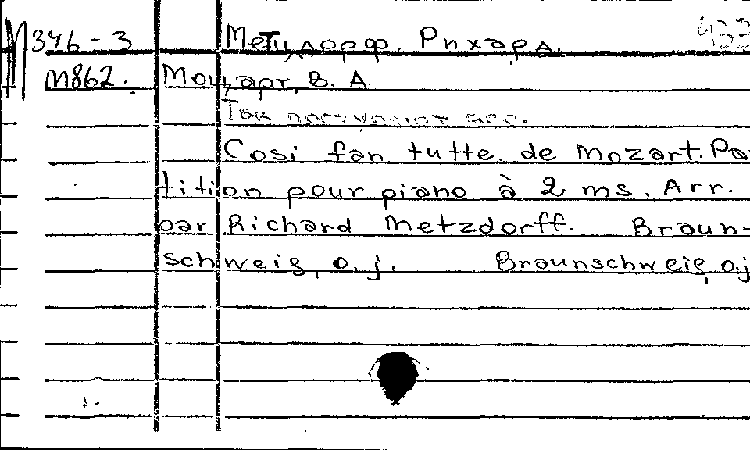 М 346-3 Метцдорф, Рихард 433
М862. Моцарт, В. А
Так поступают все.
Cosi fan tutte de Mozart. Par
tition pour piano à 2 ms. Arr.
par Richard Metzdorff. Braun-
schweig, o.j. Braunschweig, o.j